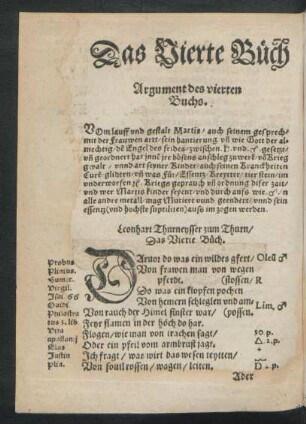 Das Vierte Bůch
Argument des vierten
Buchs.
Vom lauff vnd gestalt Martis/ auch seinem gesprech/
mit der Frauwen art/ sein hantierung/ vñ wie Gott der al-
mechtig/ dē Engel des frides/ zwischen ♄. vnd. ♂. gesetzt/
vñ geordnert hat jnnē jre bösens anschleg zuwerē/ vō Krieg
gwalt/ vnnd art seyner Kinder/ auch seinen Kranckheiten
Curē glideren/ vñ was Für/ Essentz/ Kreyter/ tier stein/ im
vnderworffen ♂. Kriegs geprauch vñ ordnung diser zait/
vnd wer Martis kinder seyent/ vnd durch auß wie ♂. in
alle andre metall mag Mutiert vnnd geendert/ vnnd sein
essentz (vnd hochste suptilitet) auss im zogen werden.
Leonhart Thurneysser zum Thurn/
Das Vierte Bůch.
Probus
Plinius.
Sumer.
Virgil.
Ouidi
Philostra
tus 3. lib
Vita
Apollonij
Elas
Justin
Plin.
Dannor do was ein wildes gfert/
Von frawen man von wegen
pferdt. (stossen/
So was ein klopfen pochen
Von hemern schleglen vnd am-
Von rauch der Himel finster war/ (possen.
Feyr flamen in der höch do har.
Flogen/ wie man von trachen sagt/
Oder ein pfeil vom armbrust jagt.
Ich fragt/ was wirt das wesen teyten/
Von souil rossen/ wagen/ leiten.
Oleū ♂
R
Lim. ♂
30 p.
Δ 2. p.
Ader